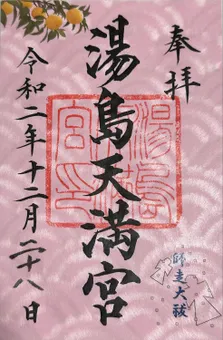 奉拝
湯島天満宮
湯島
宮印
令和二年十二月二十八日
師走大祓